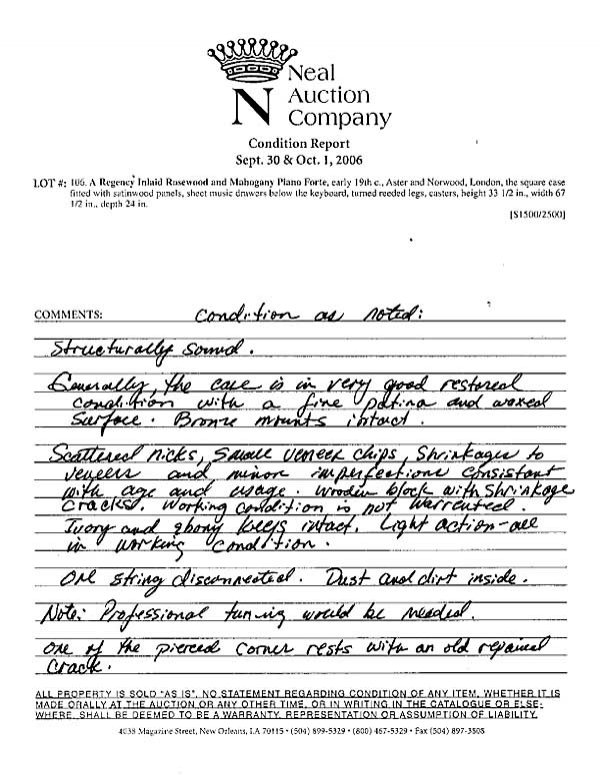 Neal
N Auction
Company
Condition Report
Sept. 30 & Oct. 1, 2006
LOT #: 106. A Regency Inlaid Rosewood and Mahogany Piano Forte, early 19th c., Aster and Norwood, London, the square case
fitted with satinwood panels, sheet music drawers below the keyboard, turned reeded legs, casters, height 33 1/2 in., width 67
1/2 in., depth 24 in.
[$1500/2500]
COMMENTS: Condition as noted:
Structurally sound.
Generally, the case is in very good restored
condition with a fine patina and waxed
surface. Bronze mounts intact.
Scattered nicks, small veneer chips, shrinkages to
veneers and minor imperfections consistant
with age and usage. Wooden block with shrinkage
cracks. Working condition is not warrented.
Ivory and ebony keys intact. Light action-all
in working condition.
One string disconnected. Dust and dirt inside.
Note: Professional tuning would be needed.
One of the pierced corner rests with an old repaired
crack.
ALL PROPERTY IS SOLD "AS IS". NO STATEMENT REGARDING CONDITION OF ANY ITEM, WHETHER IT IS
MADE ORALLY AT THE AUCTION OR ANY OTHER TIME, OR IN WRITING IN THE CATALOGUE OR ELSE-
WHERE, SHALL BE DEEMED TO BE A WARRANTY, REPRESENTATION OR ASSUMPTION OF LIABILITY.
4038 Magazine Street, New Orleans, LA 70115 • (504) 899-5329 • (800) 467-5329 • Fax (504) 897-3808